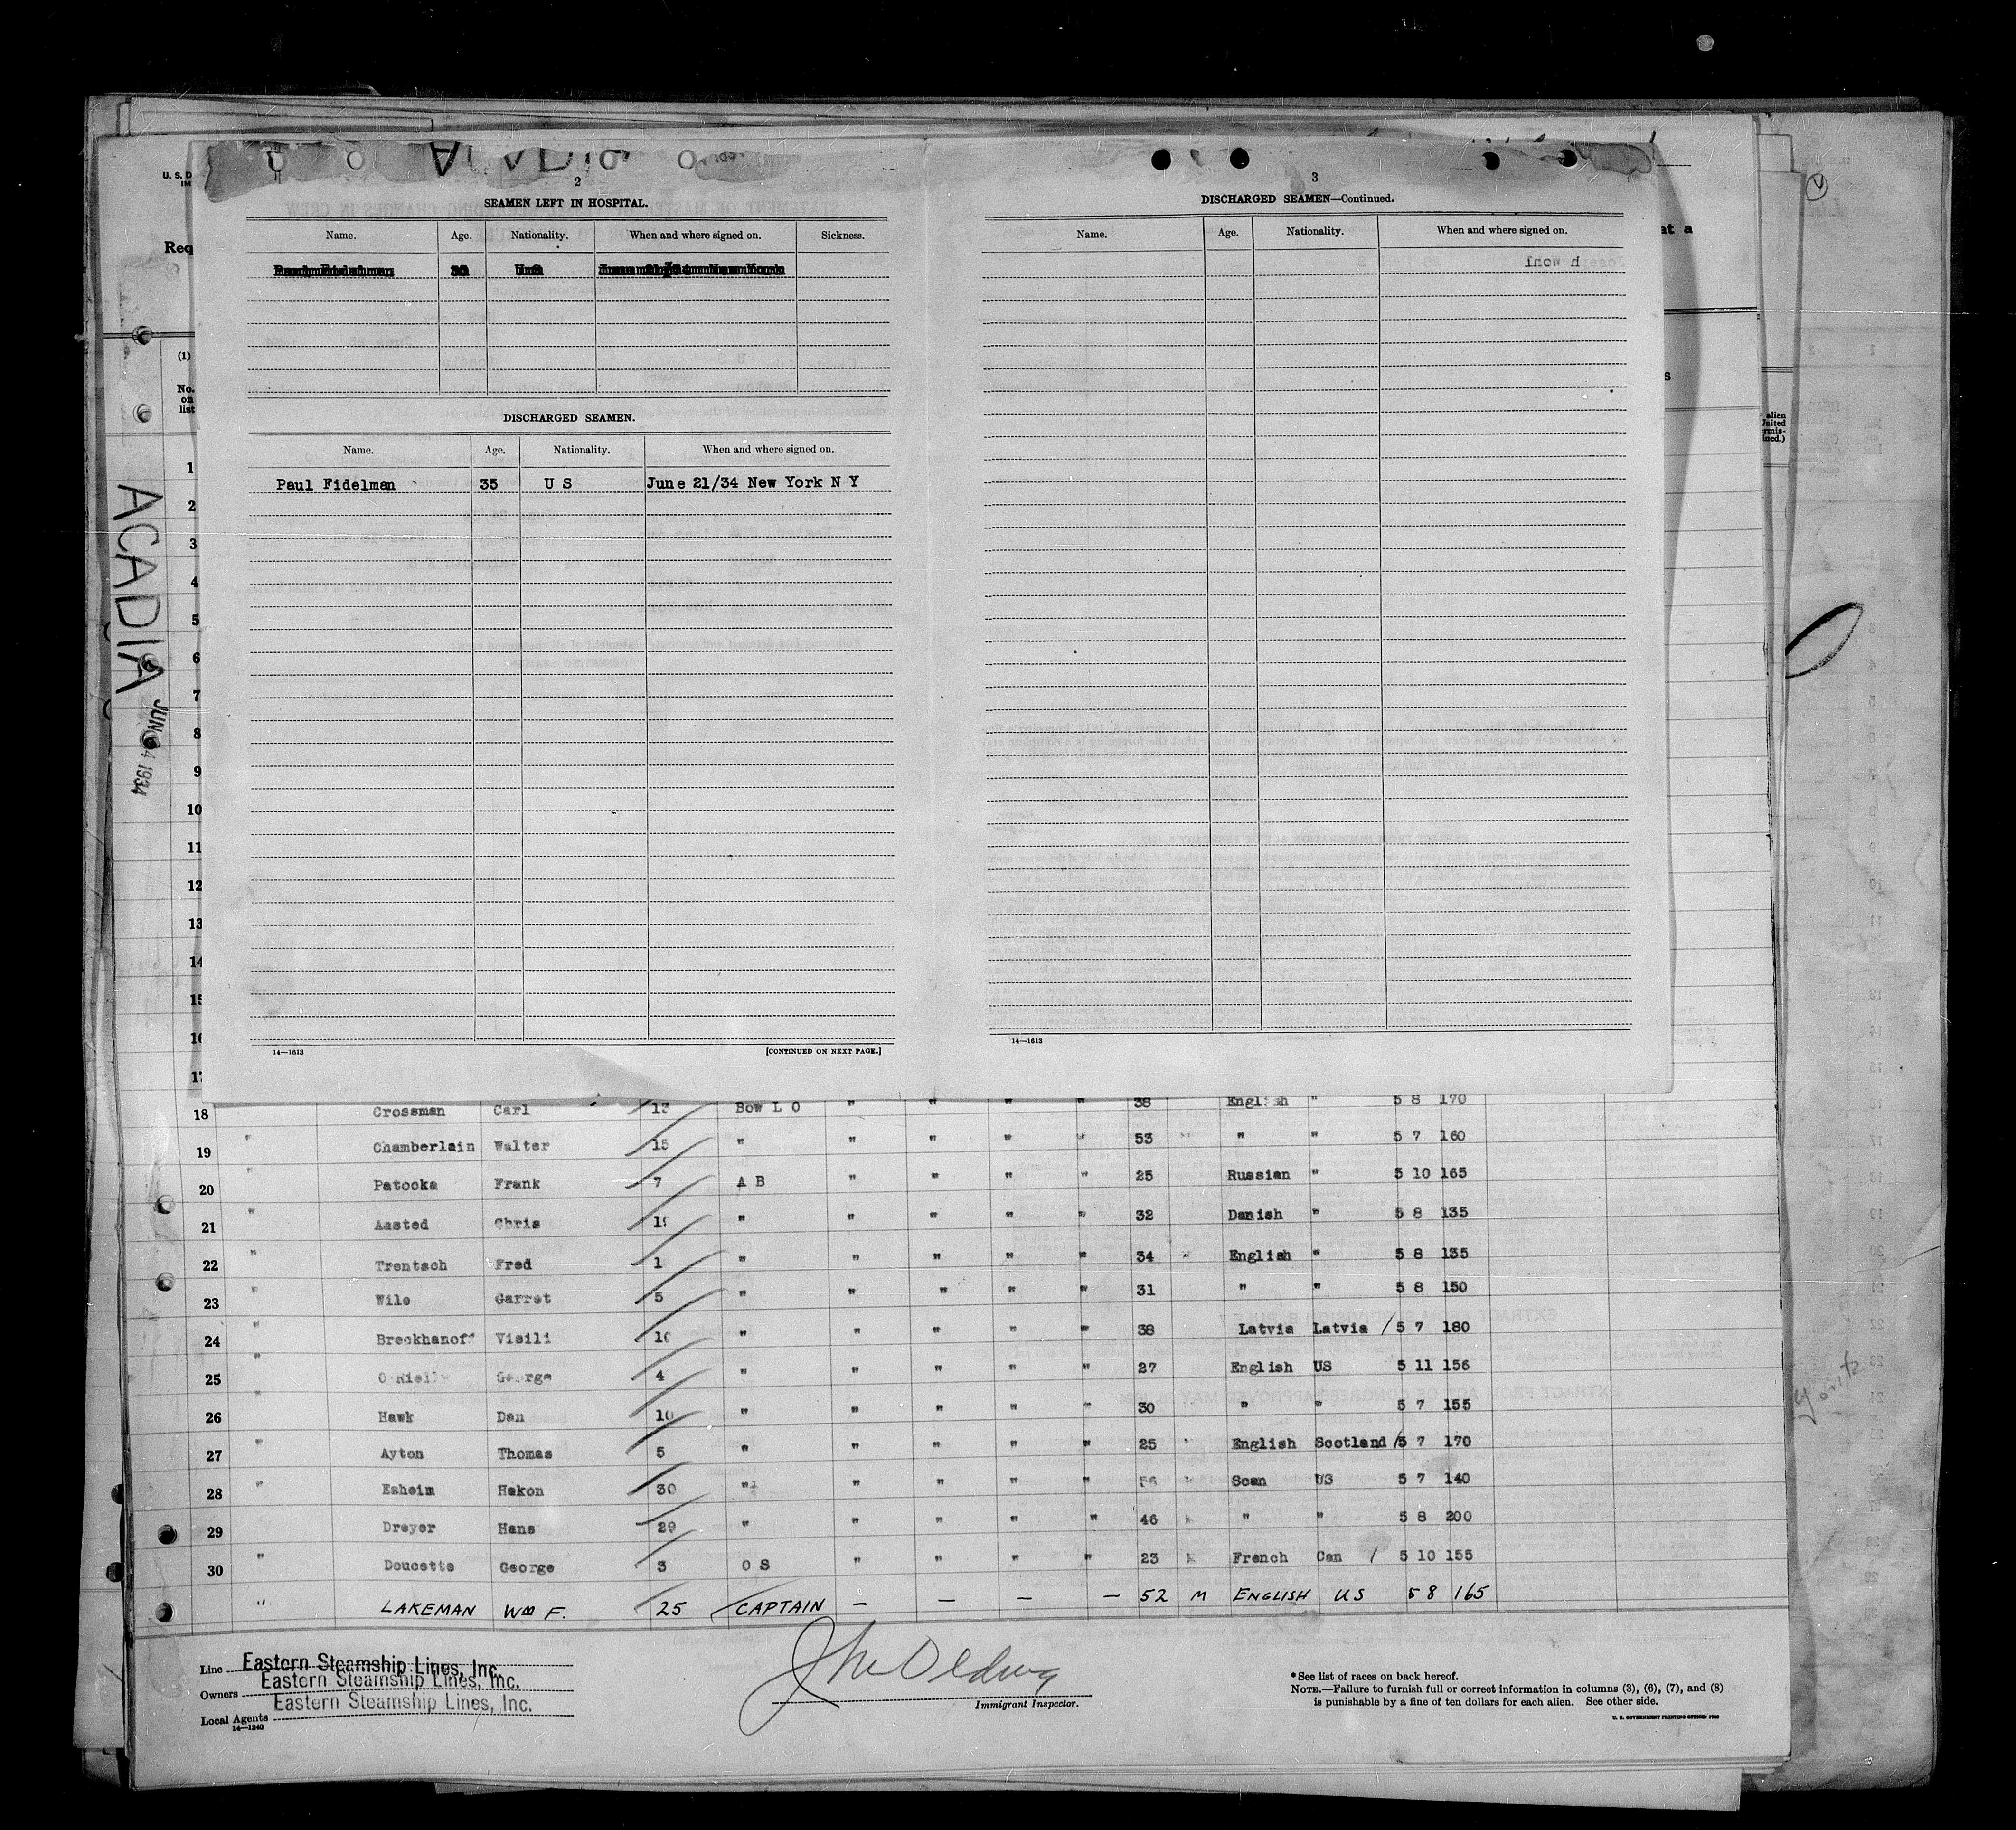 ACADIA
U. S. D
IM
2
SEAMEN LEFT IN HOSPITAL.
Name. Age. Nationality. When and where signed on. Sickness.
DISCHARGED SEAMEN.
Name. Age. Nationality. When and where signed on.
Paul Fidelman 35 U S June 21/34 New York N Y
14—1613 [CONTINUED ON NEXT PAGE.]
3
DISCHARGED SEAMEN—Continued.
Name. Age. Nationality. When and where signed on.
14—1613
Req
at a
s
(1)
No.
on
list
alien
United
rmis-
ined.)
ACADIA
JUN 24 1934
1
2
3
4
5
6
7
8
9
10
11
12
13
14
15
16
17
18 Crossman Carl 13 Bow L O " " " " 38 English " 5 8 170
19 " Chamberlain Walter 15 " " " " " 53 " " " 5 7 160
20 " Patocka Frank 7 A B " " " " 25 Russian " 5 10 165
21 " Aasted Chris " " " " " 32 Danish " 5 8 135
22 " Trentsch Fred 1 " " " " " 34 " English " 5 8 135
23 " Wile Garret 5 " " " " " 31 " " 5 8 150
24 " Breokhanoff Visili 10 " " " " " 38 Latvia Latvia / 5 7 180
25 " George 4 " " " " " 27 English US 5 11 156
26 " Hawk Dan 10 " " " " " 30 " " 5 7 155
27 " Ayton Thomas 5 " " " " " 25 " English Scotland / 5 7 170
28 " Esheim Hakon 30 " " " " " 56 " Scan US 5 7 140
29 Dreyer Hans 29 " " " " " 46 " " " 5 8 200
30 " Doucette George 3 O S " " " " 23 French Can / 5 10 155
" LAKEMAN Wm F. 25 CAPTAIN — — — — 52 M ENGLISH US 5 8 165
Line Eastern Steamship Lines, Inc.
Owners Eastern Steamship Lines, Inc.
Local Agents Eastern Steamship Lines, Inc.
14—1240
Immigrant Inspector.
*See list of races on back hereof.
NOTE.—Failure to furnish full or correct information in columns (3), (6), (7), and (8)
is punishable by a fine of ten dollars for each alien. See other side.